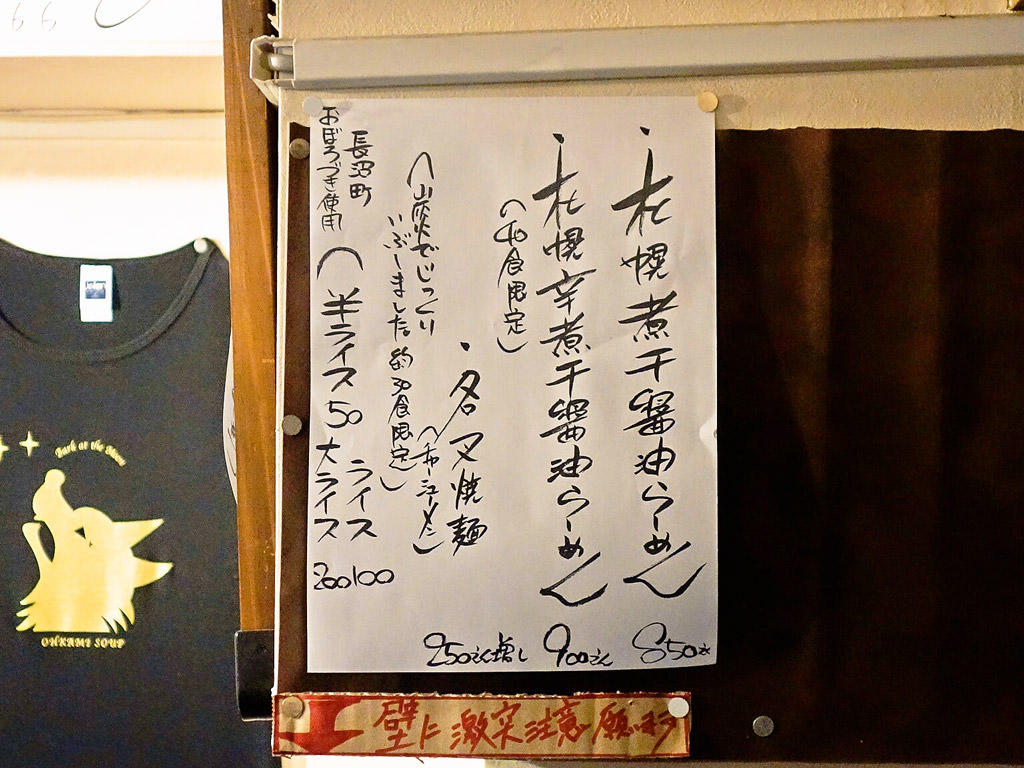 ・札幌煮干醤油らーめん
850えん
・札幌辛煮干醤油らーめん
900えん
(10食限定)
・名叉焼麺
250えん増し
(チャーシューメン)
(山炭でじっくり
いぶしました約30食限定)
長沼町
おぼろづき使用
(ライス
100
半ライス50 大ライス
200
壁に激突注意願います
Bark at the Moon
OHKAMI SOUP